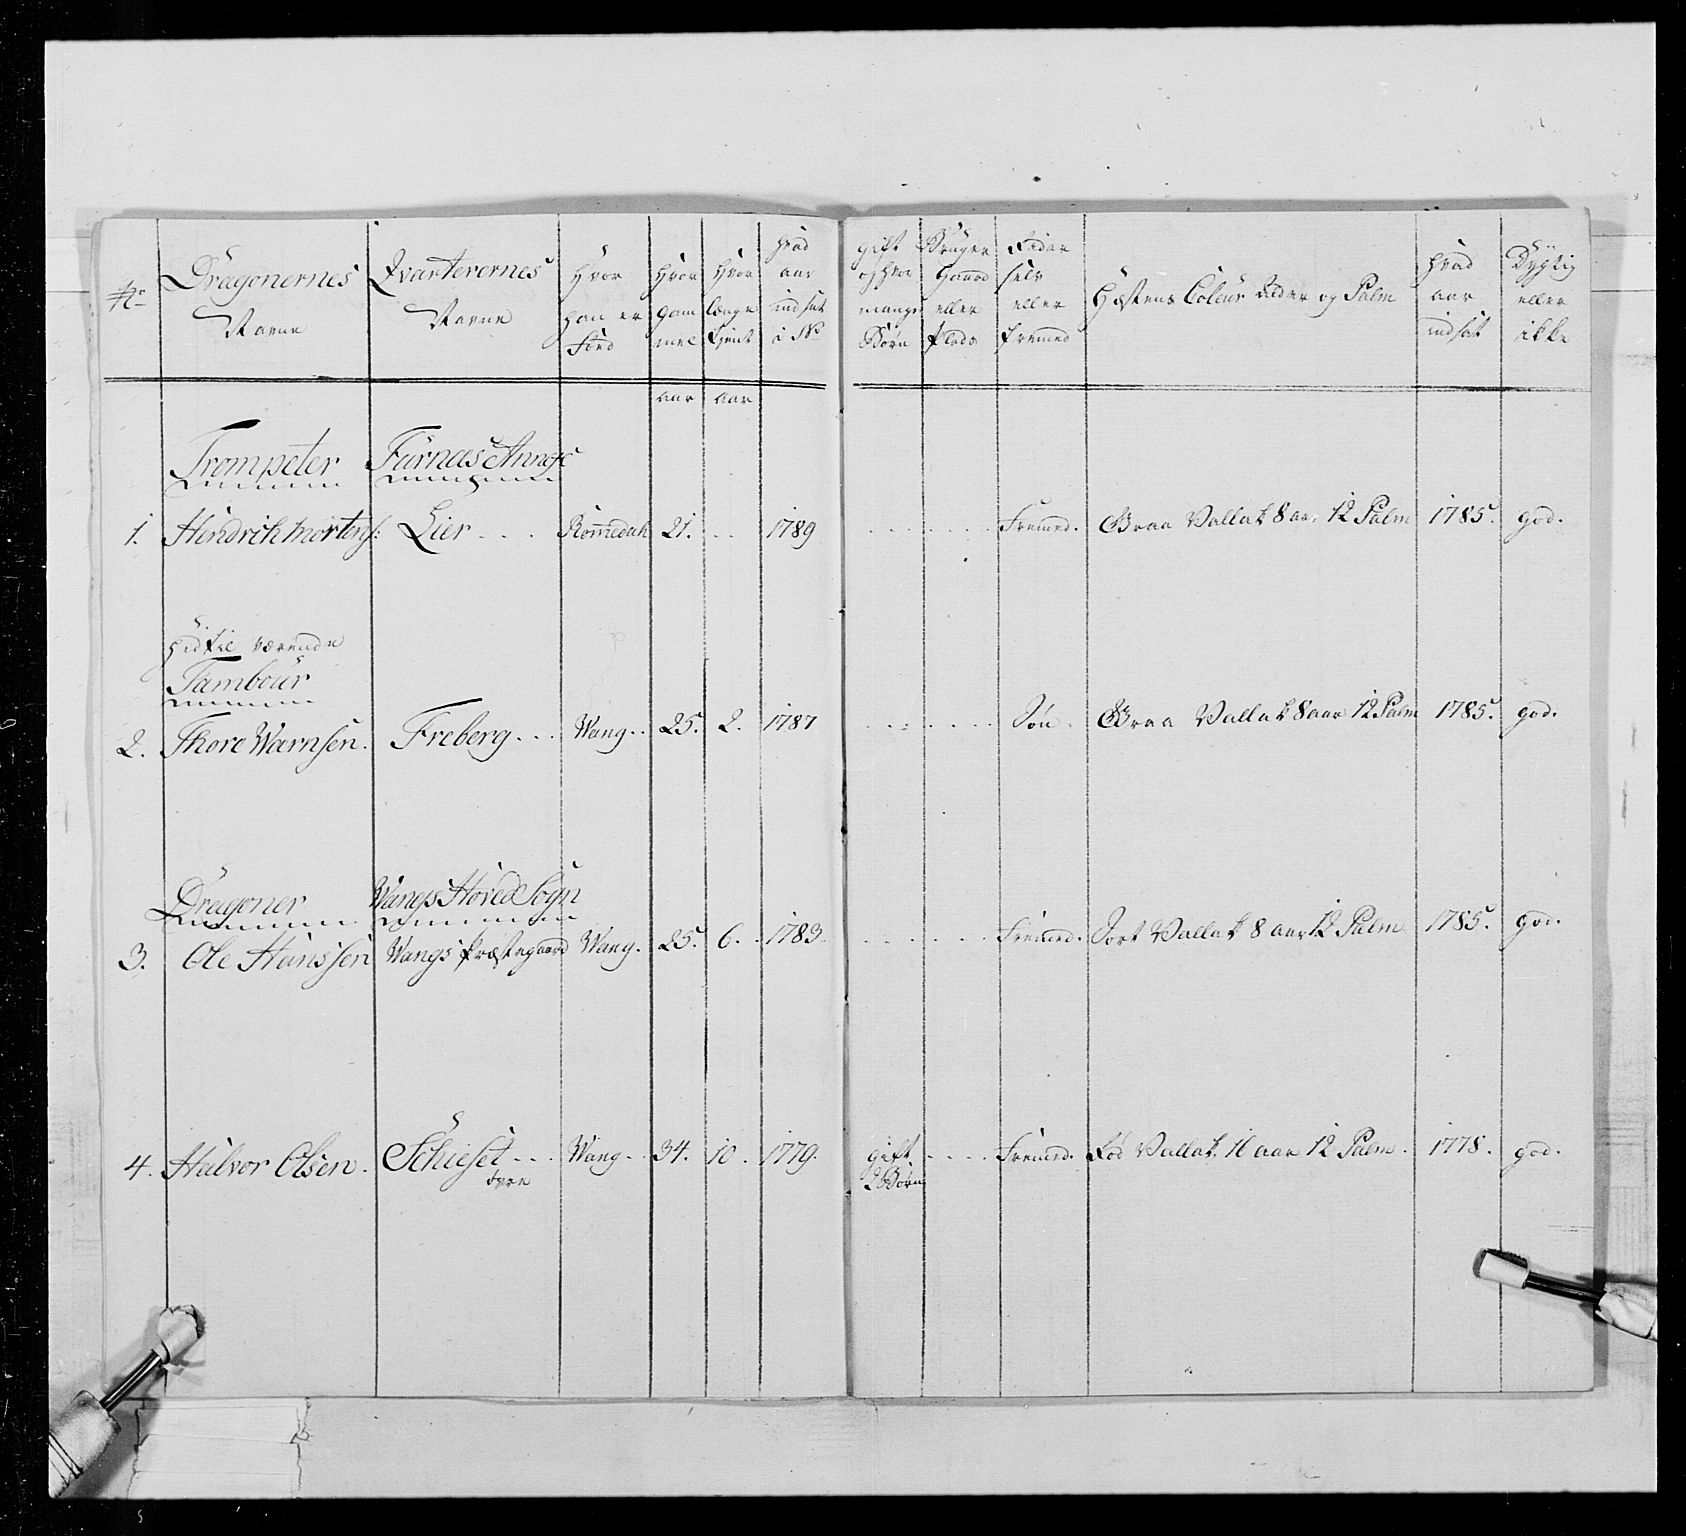 No
Dragonernes
Navne
Qvarterernes
Navne
Hvor
han er
Föed
Hvor
gam
mel
Hvor
længe
tjent
Hvad
aar
indsat
i No
gift
og hvor
mange
Børn
Bruger
Gaard
eller
Plads
Rider
selv
eller
fremed
Hæstens Coleur Alder og Palm
Hvad
aar
indsat
Dygtig
eller
ikke
aar aar
Trompeter Furnæs Annex
1. Hendrich Mortens: Lier . . . Romedahl 21. . . 1789 . . . . . Fremed. Graa Vallak 8 aar 12 Palm 1785. god.
hidtil værende
Tambour
2. Thore Warnsen. Freberg . . . Wang . . 25. 2. 1787 . . . . . Søn. Graa Vallak 8 aar 12 Palm 1785. god.
Dragoner Wangs Hoved Sogn
3. Ole Hanssen Wangs Præstegaard Wang. 25. 6. 1783. . . . . . Fremed. Sort Vallak 8 aar 12 Palm. 1785. god.
4. Halvor Olsen. Schieset . . . Wang . . 34. 10. 1779. gift . . . . Fremed. Rød Vallak 16 aar 12 Palm. 1778. god.
øvre 2 Børn